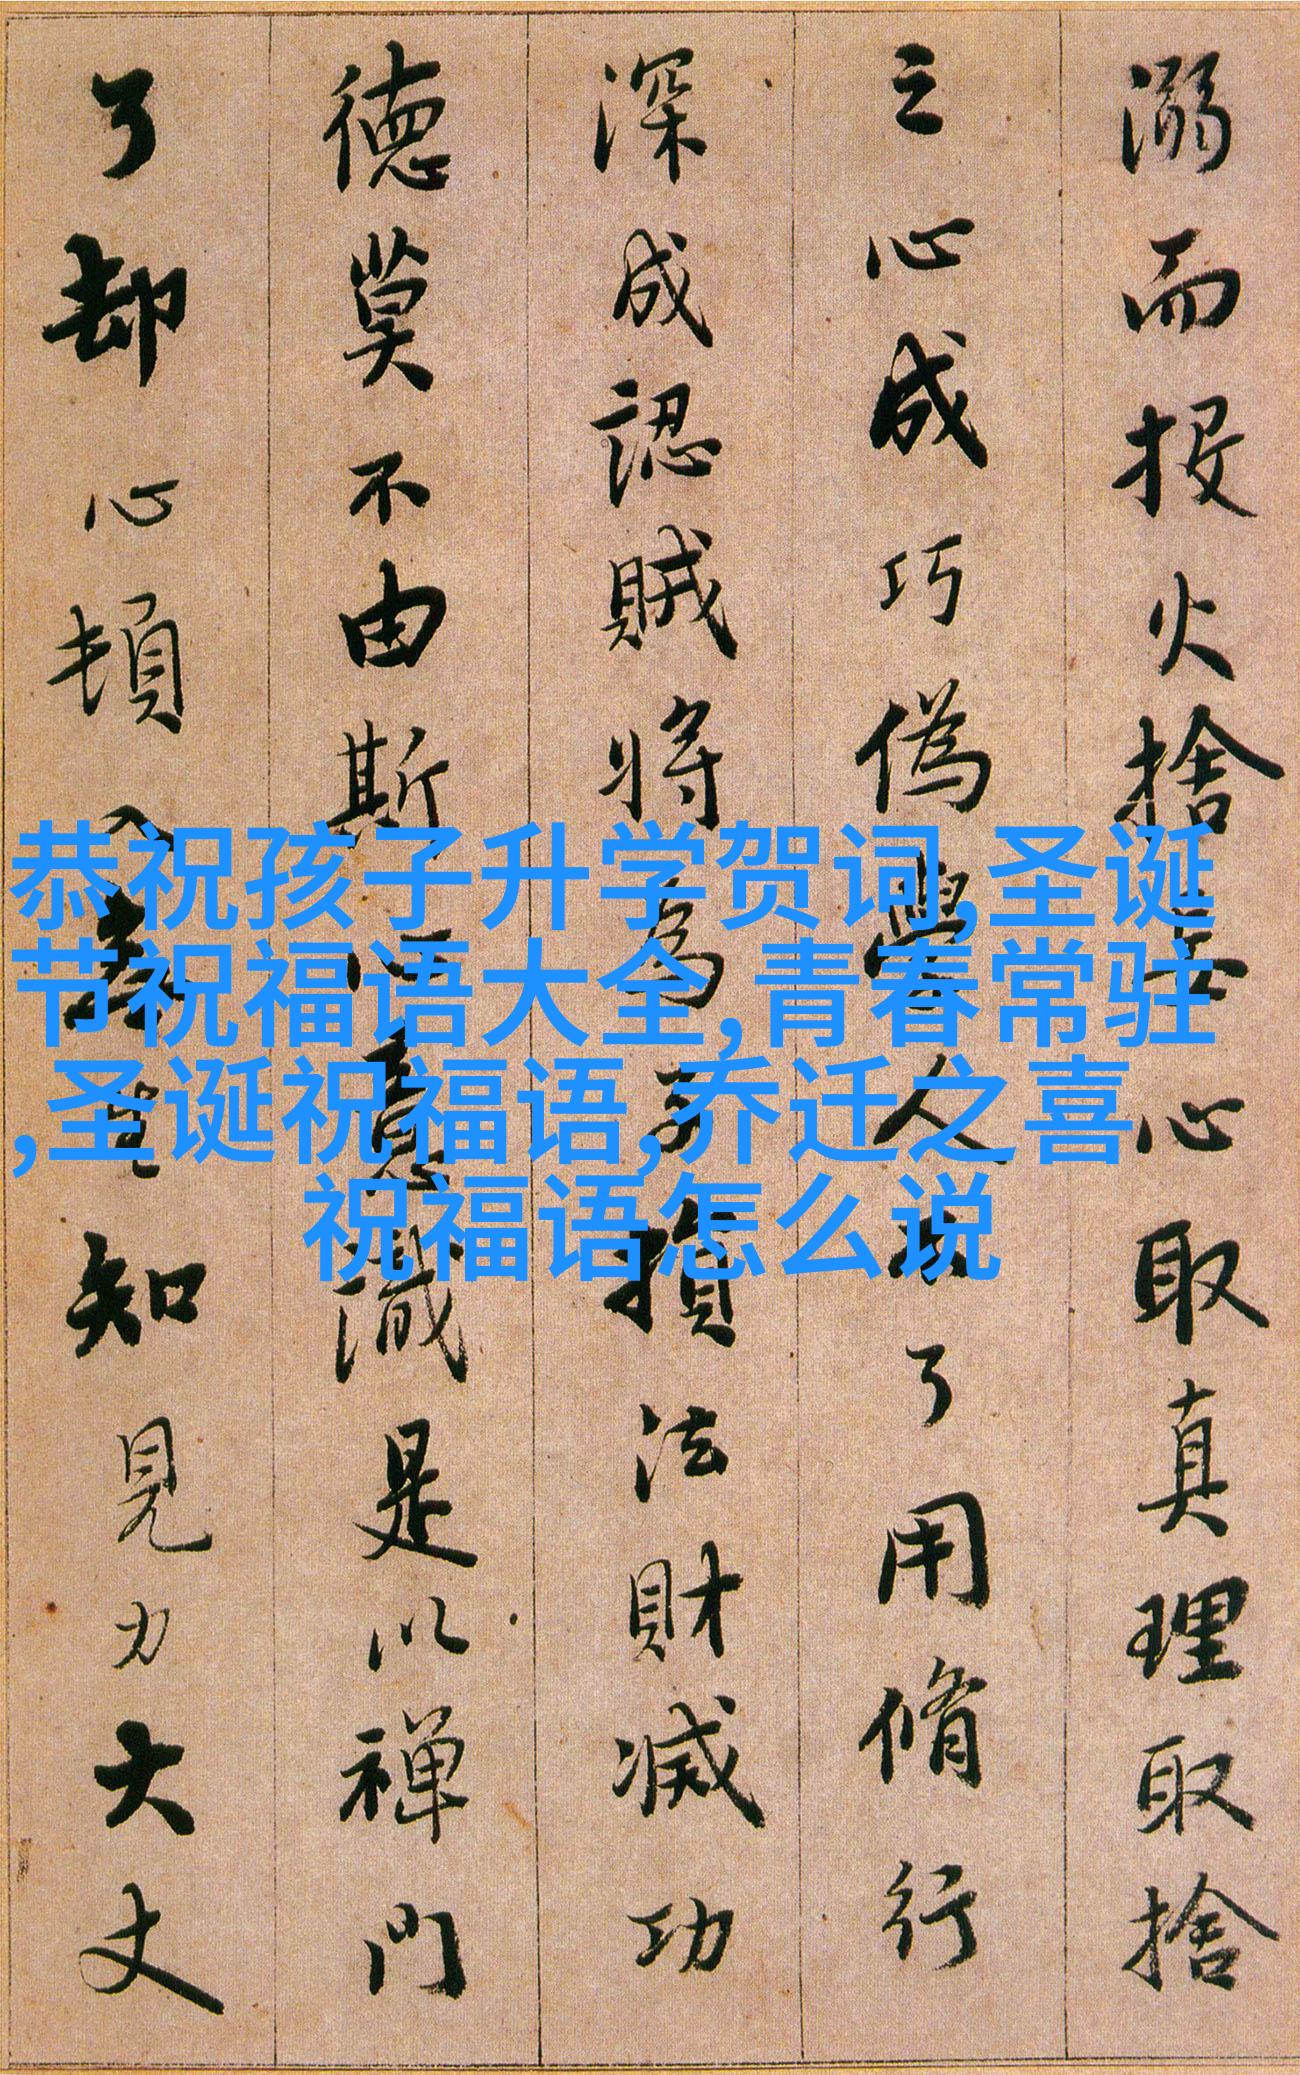 溺而投火捨妄心取真理取捨
之心成巧偽學人不了用脩行
深成認賊將為子損法財滅功
德莫不由斯心意識是以禪門
了却心頓入無生知見力大丈
恭祝孩子升学贺词,圣诞
节祝福语大全,青春常驻
,圣诞祝福语,乔迁之喜
祝福语怎么说